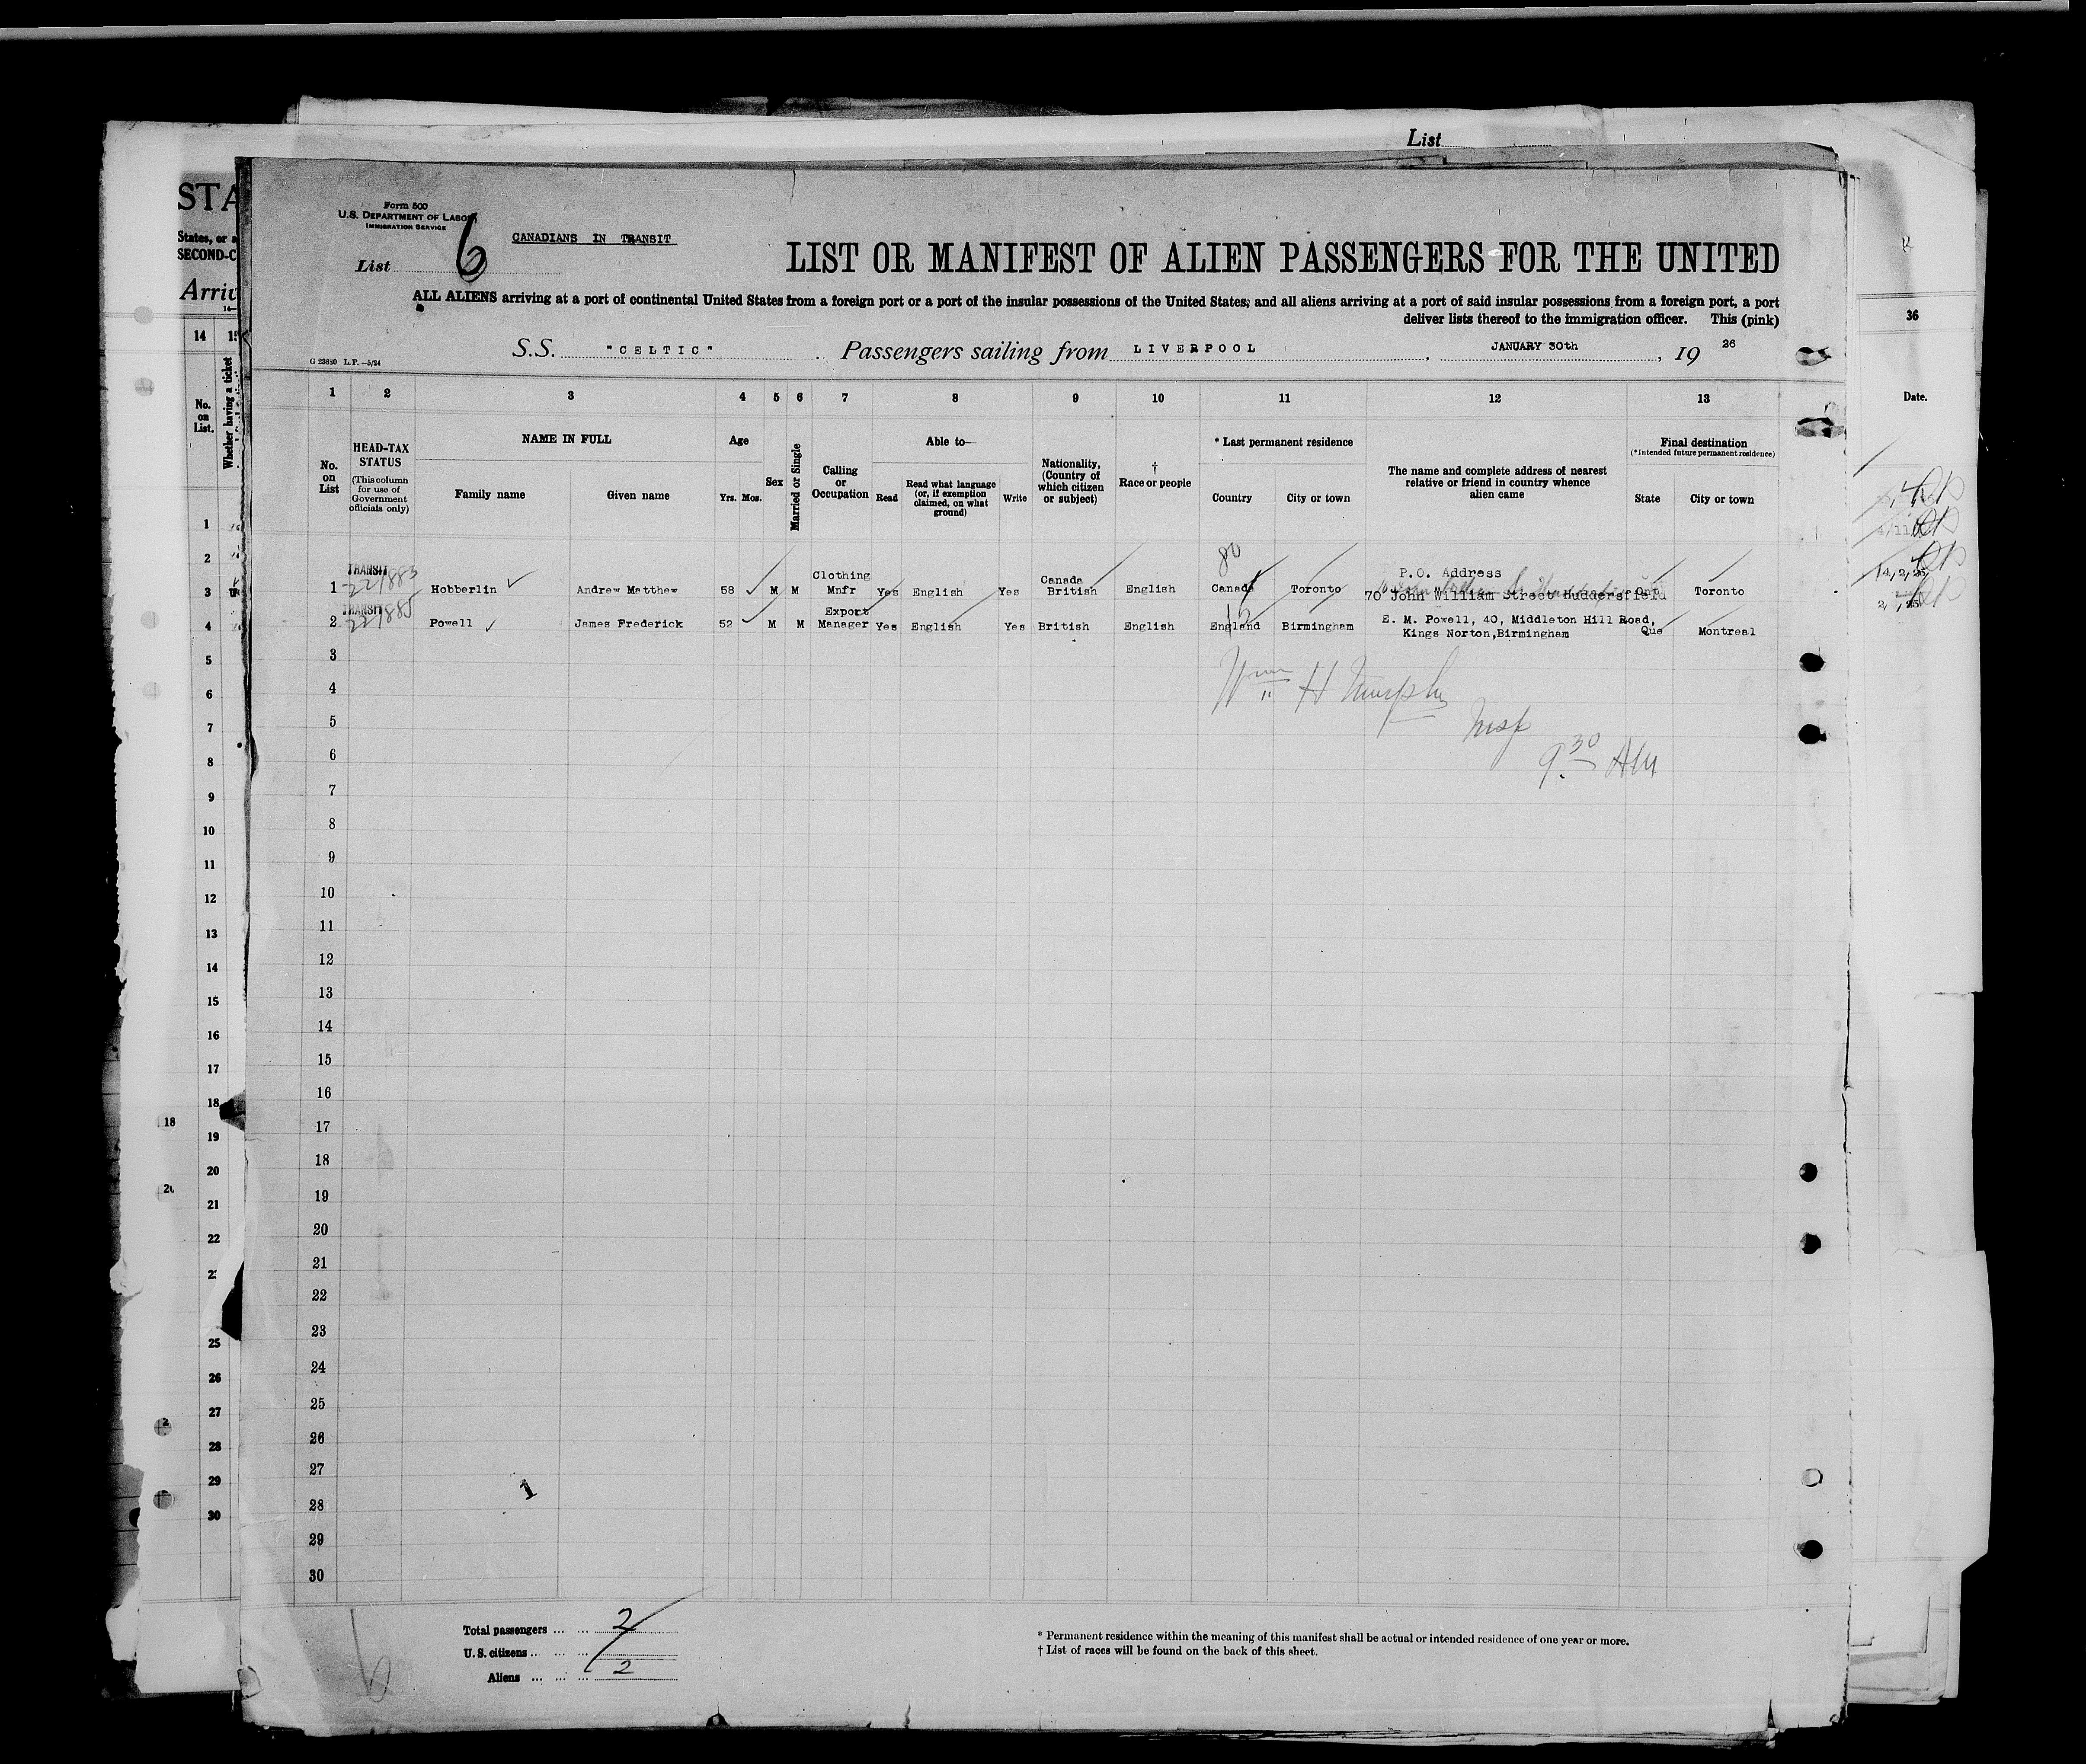 List
STA
States, or a
SECOND-C
Arriv
14 15
No. on List.
Whether having a ticket
Form 500
U.S. DEPARTMENT OF LABOR
IMMIGRATION SERVICE
CANADIANS IN TRANSIT
List 6
LIST OR MANIFEST OF ALIEN PASSENGERS FOR THE UNITED
ALL ALIENS arriving at a port of continental United States from a foreign port or a port of the insular possessions of the United States, and all aliens arriving at a port of said insular possessions from a foreign port, a port
deliver lists thereof to the immigration officer. This (pink)
G 23850 L.P.—5/24
S.S. "CELTIC" Passengers sailing from LIVERPOOL, JANUARY 30th, 19 26
1 2 3 4 5 6 7 8 9 10 11 12 13
No. on List
HEAD-TAX STATUS
(This column for use of Government officials only)
NAME IN FULL
Family name
Given name
Age
Yrs. Mos.
Sex
Married or Single
Calling or Occupation
Able to—
Read
Read what language (or, if exemption claimed, on what ground)
Write
Nationality, (Country of which citizen or subject)
† Race or people
* Last permanent residence
Country
City or town
The name and complete address of nearest relative or friend in country whence alien came
Final destination
(*Intended future permanent residence)
State
City or town
80
1 TRANSIT 22/883 Hobberlin Andrew Matthew 58 M M Clothing Mnfr Yes English Yes Canada British English Canada Toronto P.O. Address 70 John William Street Huddersfield Ont Toronto
12
2 TRANSIT 22/885 Powell James Frederick 52 M M Export Manager Yes English Yes British English England Birmingham E. M. Powell, 40, Middleton Hill Road, Kings Norton, Birmingham Que Montreal
3
Wm H Murphy
4
5
Insp
6
9.30 AM
7
8
9
10
11
12
13
14
15
16
17
18
19
20
21
22
23
24
25
26
27
1
28
29
30
Total passengers 2
U.S. citizens
Aliens 2
* Permanent residence within the meaning of this manifest shall be actual or intended residence of one year or more.
† List of races will be found on the back of this sheet.
1
2
3
4
5
6
7
8
9
10
11
12
13
14
15
16
17
18
19
20
21
22
25
26
27
28
29
30
36
Date.